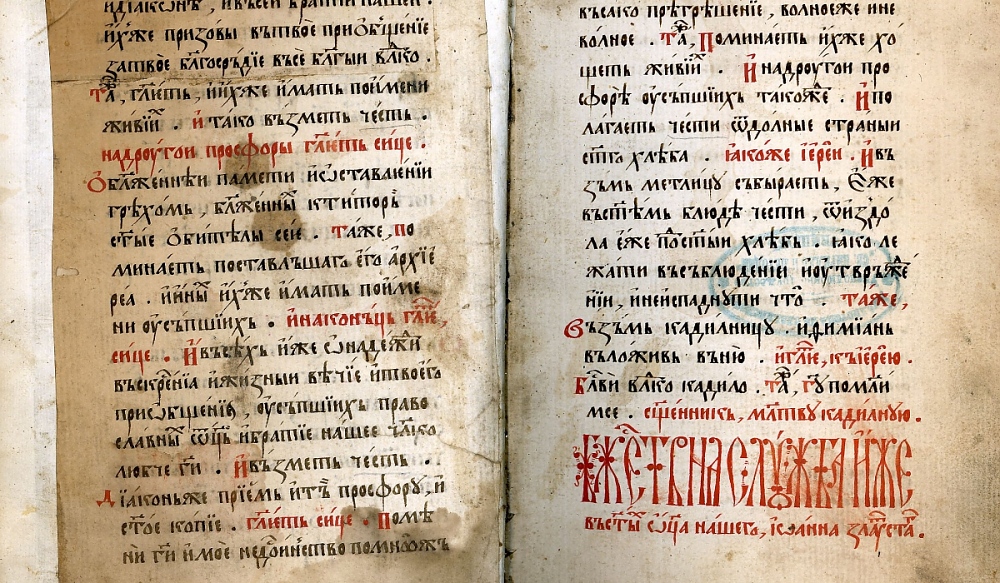 идїаконѣ, ивъсеи братїи нашеи.
и҆хже призовы вътвое приѻбщенїе
затвое бл҃госрдїе въсе бл҃гыи вл҃ко.
та, гл҃еть, ии҆хже и҆мать поимени
живїи. и҆ тако възметь честь.
надроугои просфоры гл҃еть сице.
Ѻблаженнѣи памети иѡставленїи
грѣхомь, бл҃женны ктиторь
ст҃ые ѻбитѣлы сеи. Таже, по
минаеть поставльшаго его архїе
реа. ииныи҆хже и҆мать пойме
ни оусъпшїихь. инаконьць гл҃и,
сице. И҆ въсѣхь и҆же ѡнадежи
въскрсенїа ижизныи вѣчїе итвоего
приѡбщенїа, оусъпшїихь право
славны ѡц҃ь ибратїе нашее чл҃ко
любче ги. И҆ възметь честь.
Дїаконьже прїемь итъ просфору, и
ст҃ое копїе. гл҃еть сице. Помѣ
ни ги имое недоинство помножь
въсако прѣгрѣшенїе, волноеже ине
волное. Та, Поминаеть и҆хже хо
щеть живїи. И҆ надроугои про
сфорѣ оусъпшїихь такоже. И҆ по
лагаеть чести ѿдолные страныи
ст҃го хлѣба. ꙗкоже їереи. И҆ въ
зьмь метлицу събыраеть, Єже
въст҃ѣмь блюдѣ чести, ѿиздо
ла єже пост҃ыи хлѣбь. ꙗко ле
жати въсъблюденїи иоутвръже
нїи, инеиспаднути что. Таже,
Възьмь кадилницу. ифимїань
въложивь въню. игл҃е, къїерею.
Бл҃ви вл҃ко кадило. Та, гу помл҃и
мсе. сщ҃енникь, мл҃тву кадилную.
Бж҃єствнаслужбаиже
въст҃ы ѡц҃а нашего, їѡанна злауста.